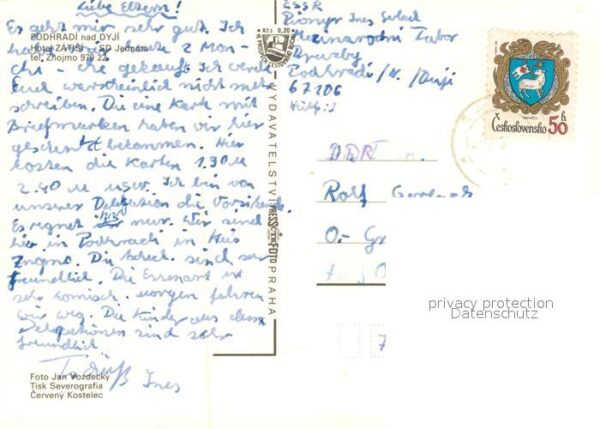 Liebe Eltern!
Es geht mir sehr gut. Ich
PODHRADÍ nad DYJÍ
Hotel ZÁTIŠÍ — SD Jednota
tel. Znojmo 970 22
habe
2 Mon-
gekauft. Ich werde
Euch warscheinlich nicht mehr
schreiben. Die eine Karte mit
Briefmarken haben wir hier
geschenkt bekommen. Hier
kosten die Karten 1.30 M
2.40 M usw. Ich bin von
unserer Delegation die
Es regnet hier nur. Wir sind
hier in Podhradi in
Znojmo. Die sind sehr
freundlich. Die Essensart ist
sehr komisch. morgen fahren
wir weg. Die Kinder aus
Delegationen sind sehr
freundlich
Tschüß Ines
Foto Jan Vozdecký
Tisk Severografia
Červený Kostelec
Kčs 0,20
VYDAVATELSTVÍ PRESSFOTO PRAHA
ČSSR
Pionyr Ines
Mezinarodni Tabor
Druzby
Podhradi /N. /Dyji
67106
DDR
Rolf
O.- Gr
7 0
7
Československo 50 h
privacy protection
Datenschutz